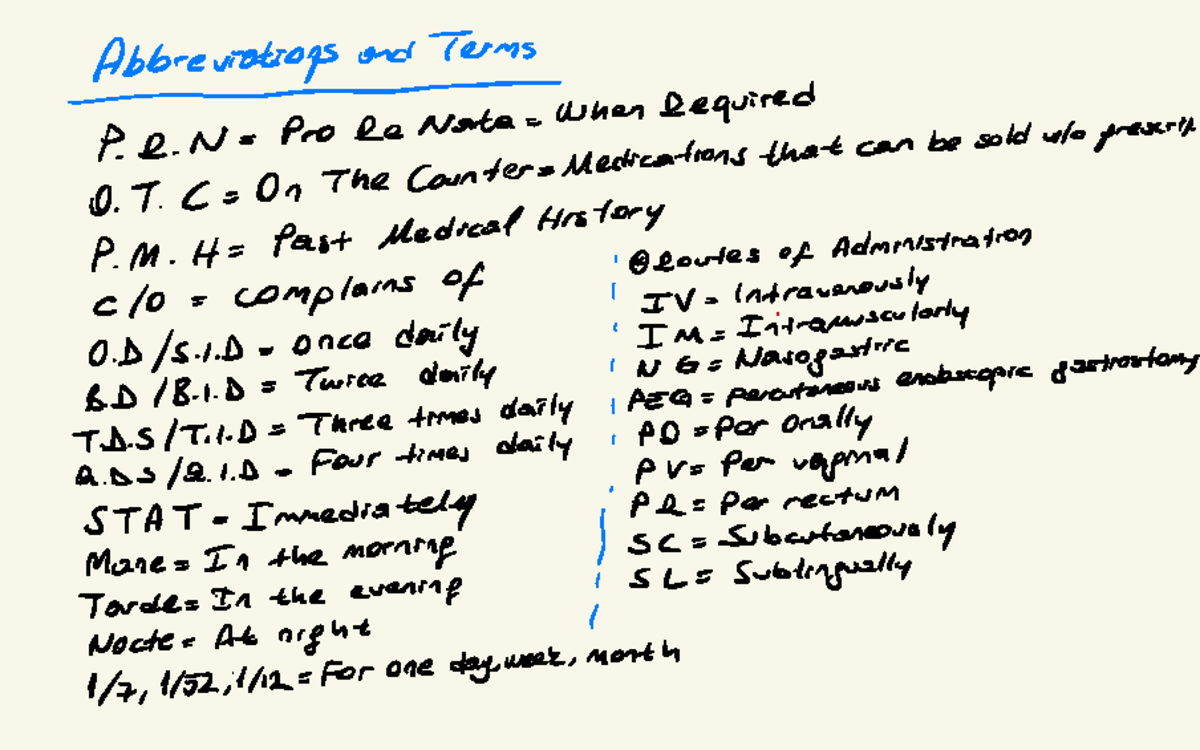 Abbreviations and Terms
P.R.N = Pro Re Nata = When Required
O.T.C = On The Counter = Medications that can be sold w/o prescrip
P.M.H = Past Medical History
C/O = complains of
O.D/S.I.D = once daily
B.D/B.I.D = Twice daily
T.D.S/T.I.D = Three times daily
Q.D.S/Q.I.D = Four times daily
STAT = Immediately
Mane = In the morning
Tarde = In the evening
Nocte = At night
1/7, 1/52, 1/12 = For one day, week, month
Routes of Administration
IV = Intravenously
IM = Intramuscularly
NG = Nasogastric
PEG = percutaneous endoscopic gastrostomy
PO = Per Orally
PV = Per vaginal
PR = Per rectum
SC = Subcutaneously
SL = Sublingually